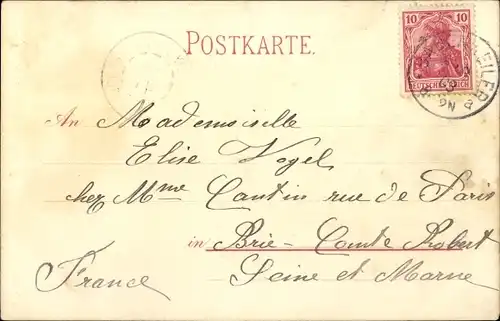 POSTKARTE.
10
DEUTSCHES REICH
An Mademoiselle
Elise Vogel
chez Mme Cantin rue de Paris
in Brie-Comte Robert
Seine et Marne
France